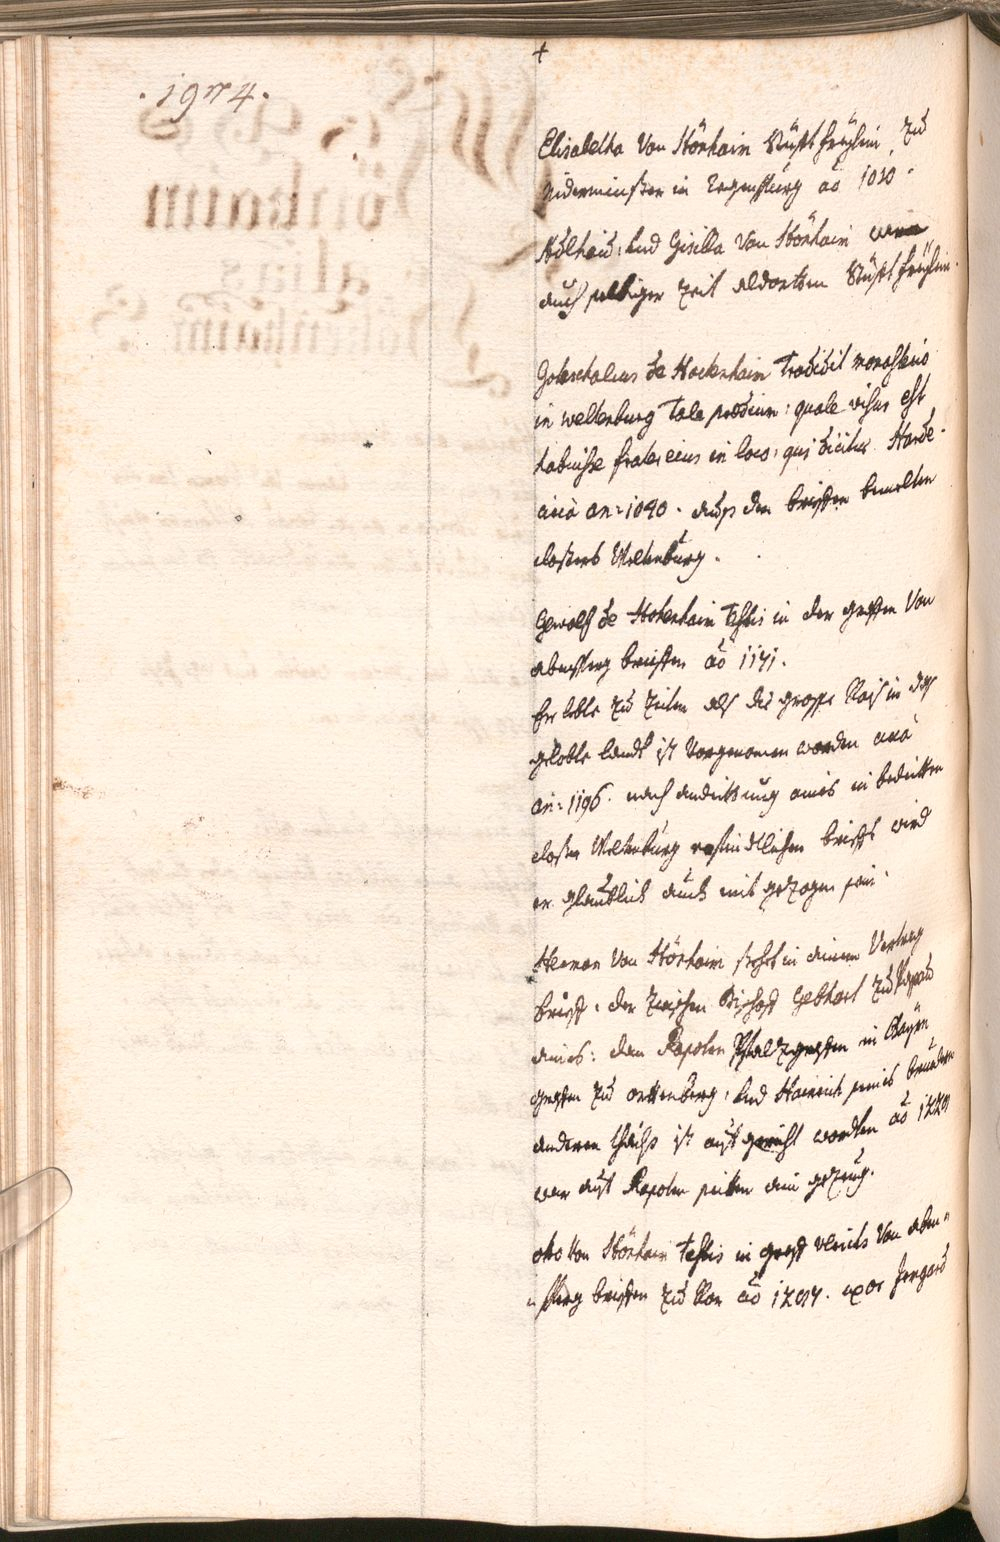 . 1974 .
+
Elisabetha Von Hörhaim Stüfft freylein zu
Niderminster in Regenspurg aō 1030 .
Adlhaid : Und Gisilla Von Hörhaim
auch selbiger Zeit aldorten Stüfft freylein .
Goteschalcus de Hackenhaim tradidit monasterio
in weltenburg tale predium : quale visus est
habuisse frater eius in loco : qui dicitur Harde .
circa an : 1040 . aus den brieffen bemelten
closters Weltenburg .
Gewolf de Hokenhaim testis in der graffen Von
abensperg brieffen aō 1171 .
Er lebte zu Zeiten als die grosse Rais in das
gelobte landt ist Vorgenomen worden circa
an : 1196 . nach andeittung aines in bedeitten
closter Weltenburg verhandtlichen brieffs wird
er glaublich auch mit gezogen sein .
Herman Von Hörhaim stehet in ainem Vertrag
brieff : der zwischen Bischoff Gebhart zu Passau
aines : dan Rapoten Pfaltzgraffen in Bayrn
graffen zu ortenberg : Und Hainrich seines bruedern
anderen thails ist auf gericht worden aō 1229
war auf Rapoten seitten ain gezeug .
otto Von Hörhaim testis in graff Ulrichs Von aben=
sperg brieffen zu Ror aō 1297 . uxor Irngard